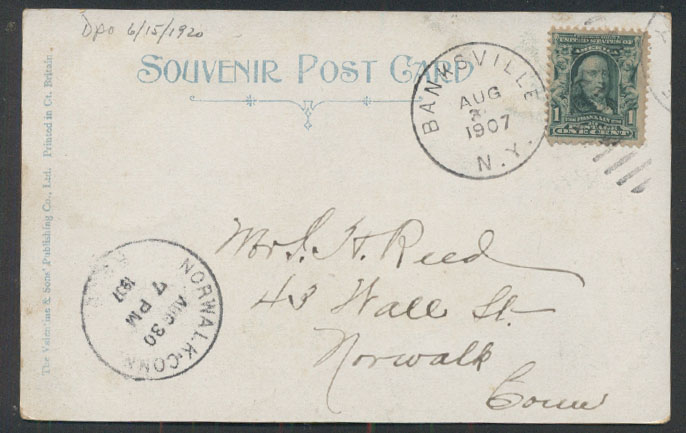 DPO 6/15/1920
SOUVENIR POST CARD
BANKSVILLE
AUG
1907
N.Y.
UNITED STATES OF
AMERICA
1 FRANKLIN 1
POSTAGE
ONE CENT
Mr. J. H. Reed
43 Wall St.
Norwalk
Conn
NORWALK·CONN
AUG 30
7 PM
1907
The Valentine & Sons' Publishing Co., Ltd. Printed in Gt. Britain.